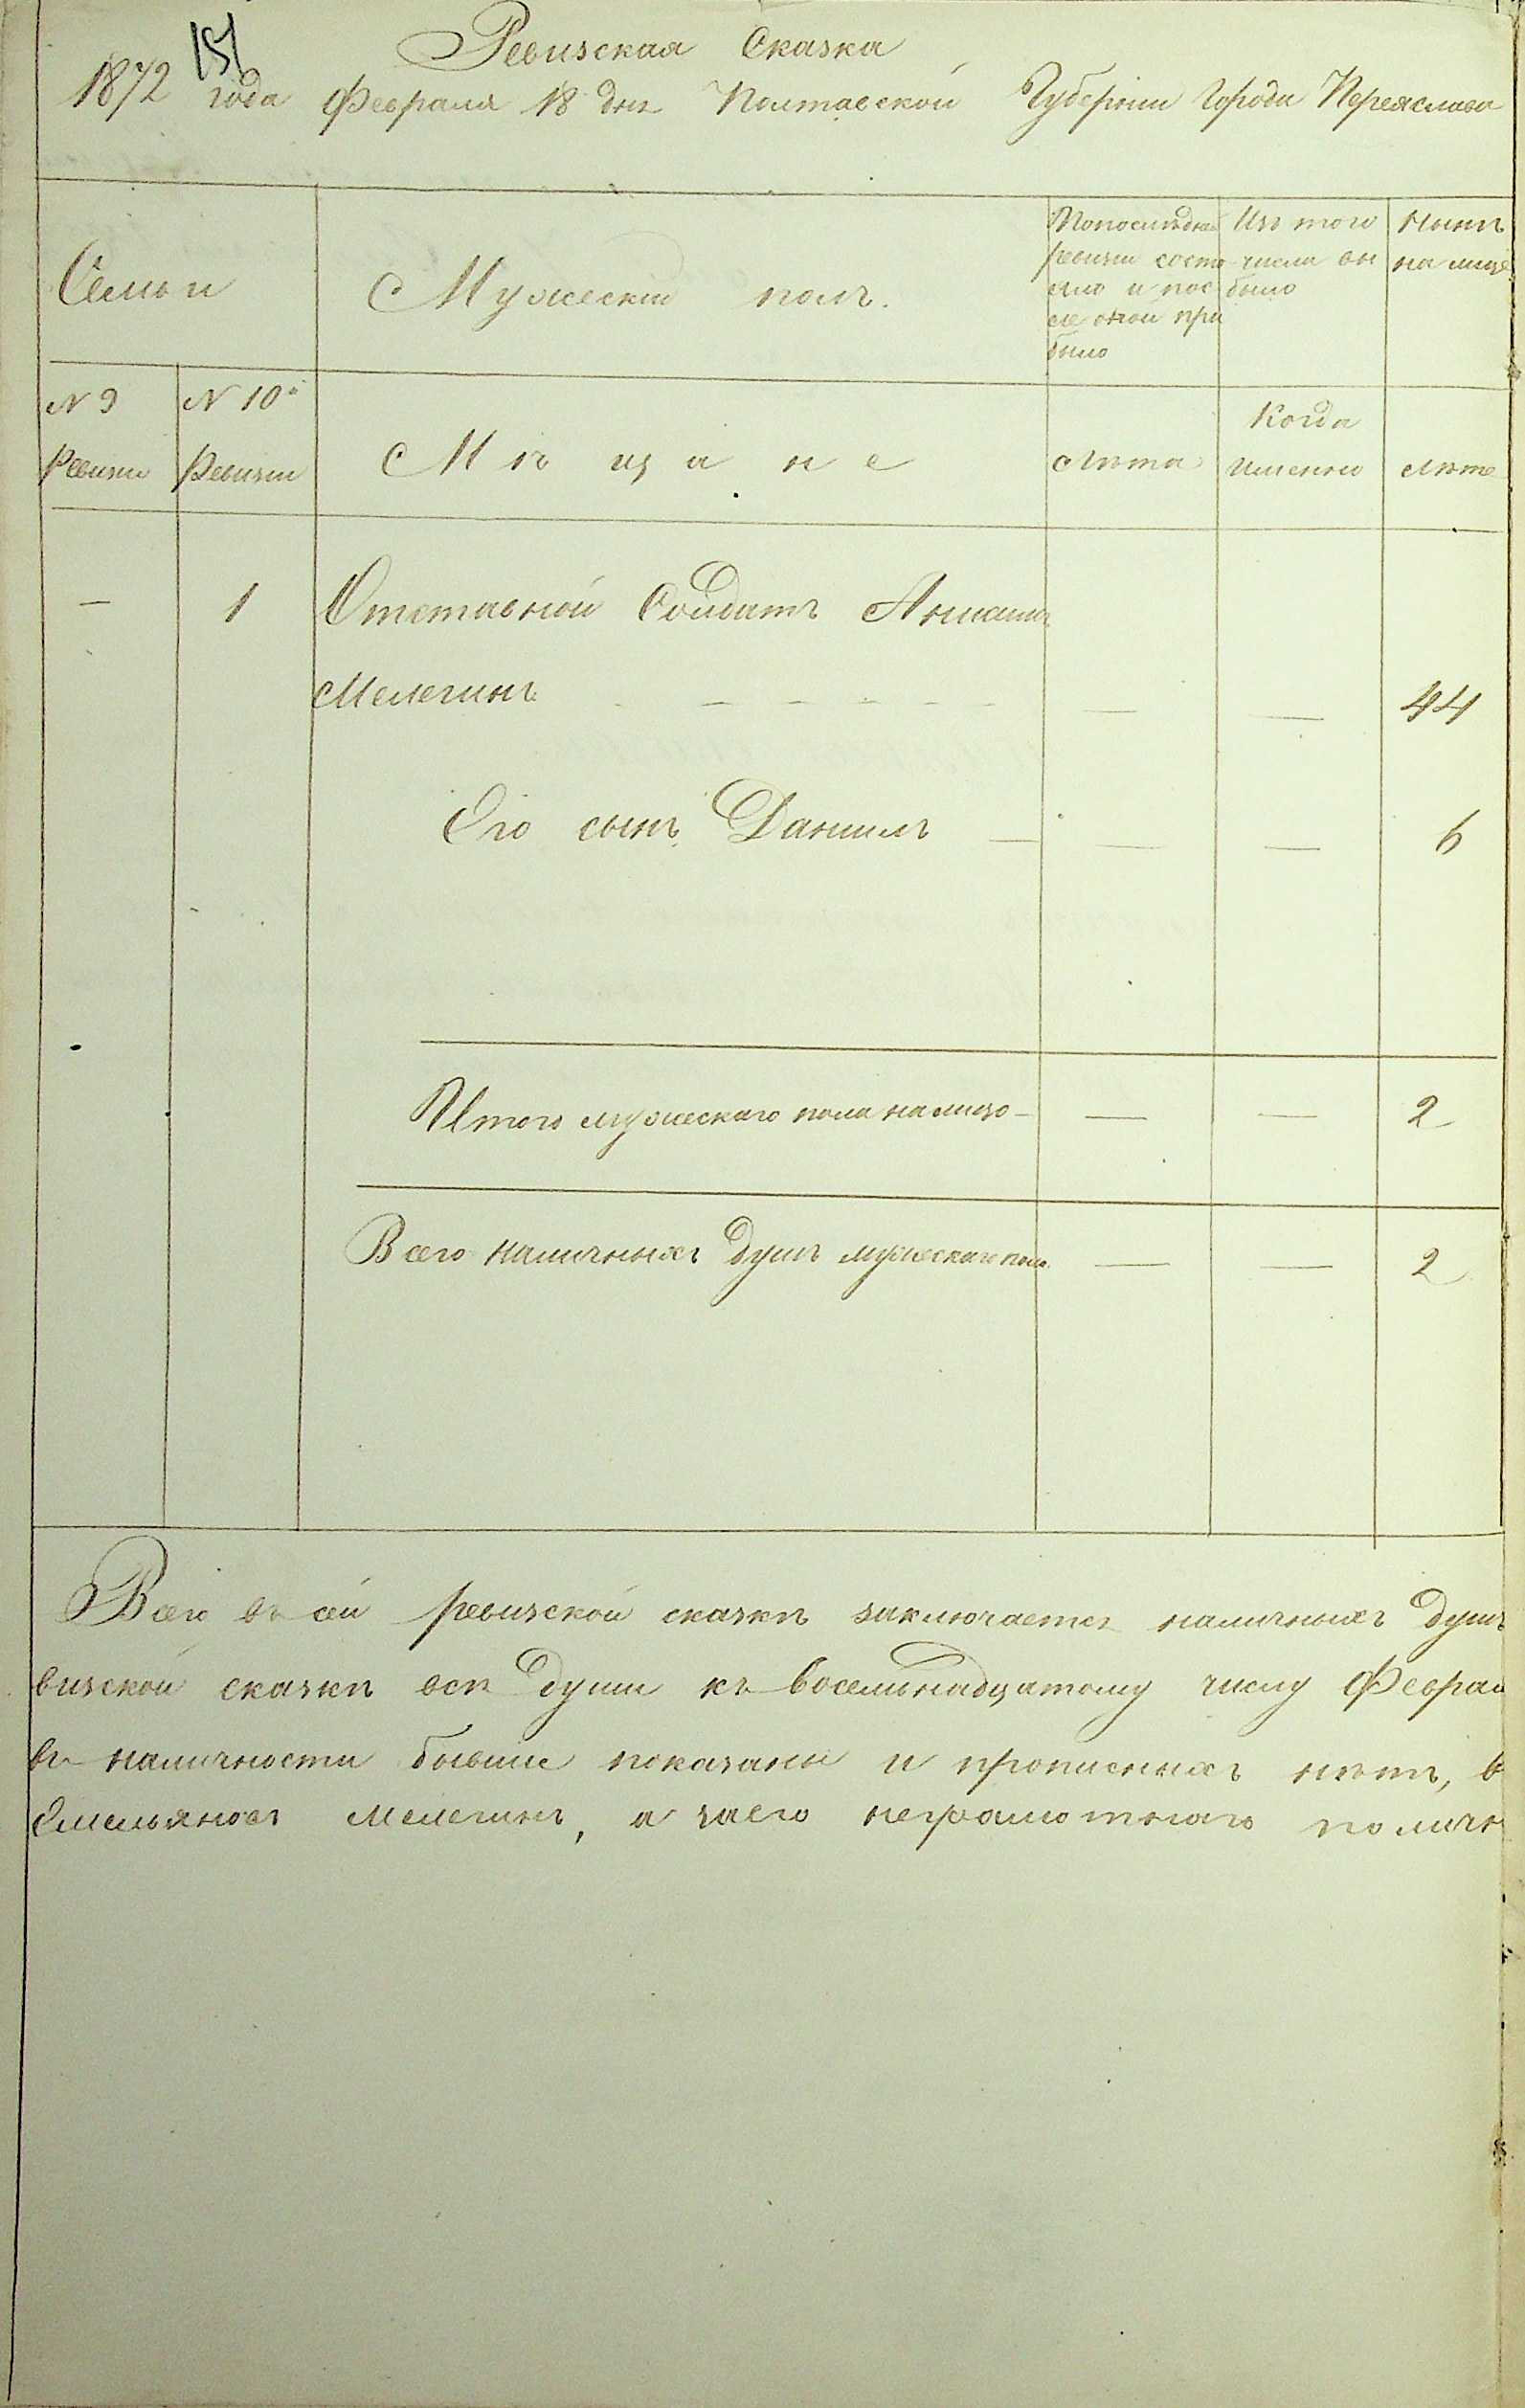 151
Ревизская Сказка
1872 года Февраля 18 дня Полтавской Губерніи Города Переяслава
Семьи
Мужескій полъ.
По последней
ревизіи состо
яло и пос
ле оной при
было
Изъ того
числа вы
было
Нынѣ
на лицо
N 9
Ревизіи
N 10й
Ревизіи
Мѣщане
Лѣта
Когда
именно
Лѣта
— 1 Отставной Солдатъ
Мелегинъ — — 44
Его сынъ Даниилъ — — — 6
Итого мужескаго пола на лицо — — — 2
Всего наличныхъ душъ мужескаго пола — — 2
Всего въ сей ревизской сказкѣ заключается наличныхъ душъ
визской сказкѣ все души къ восемьнадцатому числу Феврал
въ наличности бывшие показаны и прописныхъ нѣтъ, в
Емельяновъ Мелегинъ, а за его неграмотнаго по личн